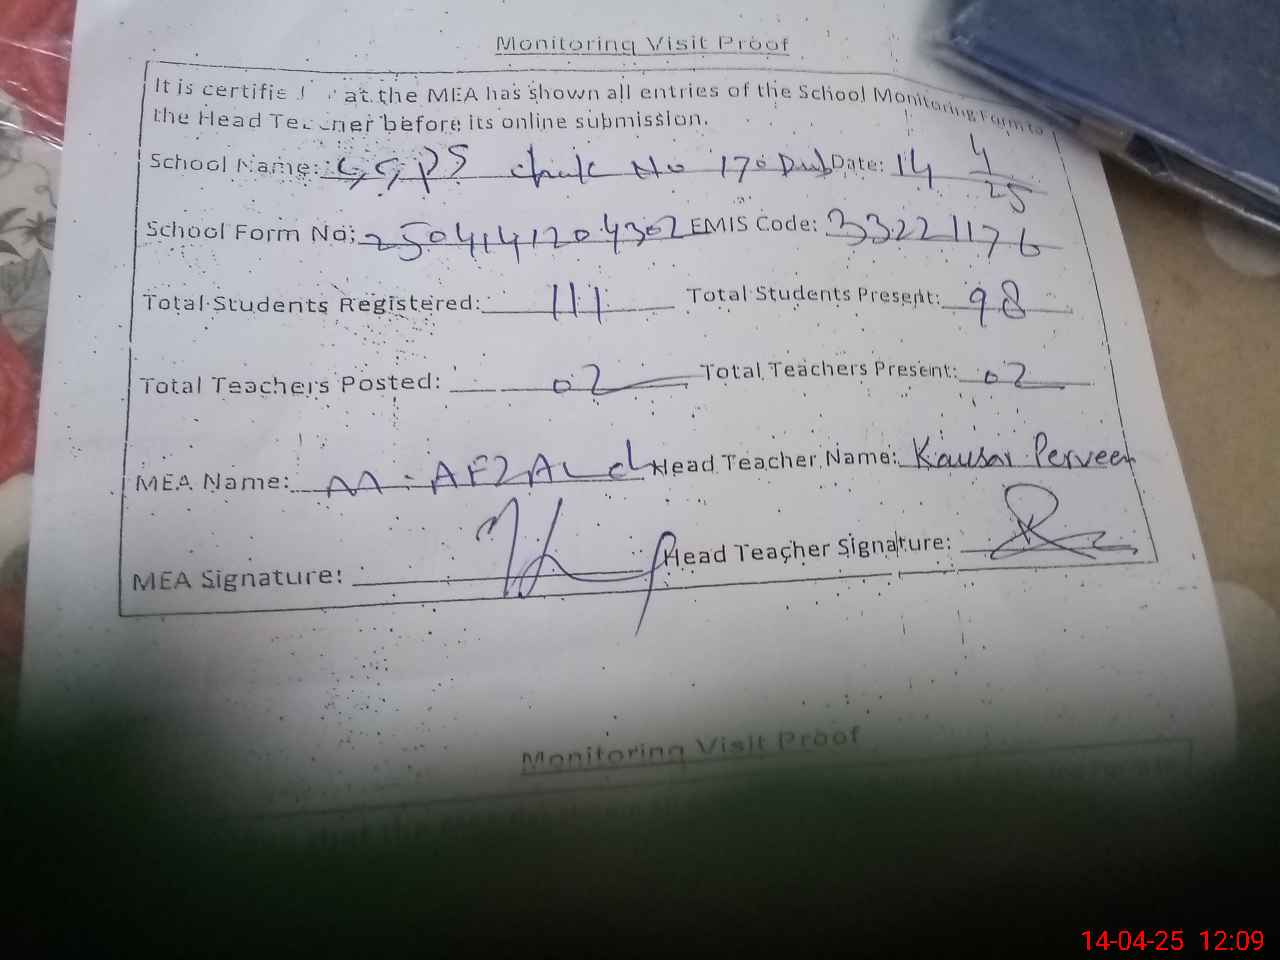 Monitoring Visit Proof
It is certified that the MEA has shown all entries of the School Monitoring Form to
the Head Teacher before its online submission.
School Name: GGPS chak No 170 Date: 14/4/25
School Form No: 2504141204302 EMIS Code: 33221176
Total Students Registered: 111 Total Students Present: 98
Total Teachers Posted: 02 Total Teachers Present: 02
MEA Name: M. AFZAL Head Teacher Name: Kausar Perveen
MEA Signature: Head Teacher Signature:
Monitoring Visit Proof
14-04-25 12:09